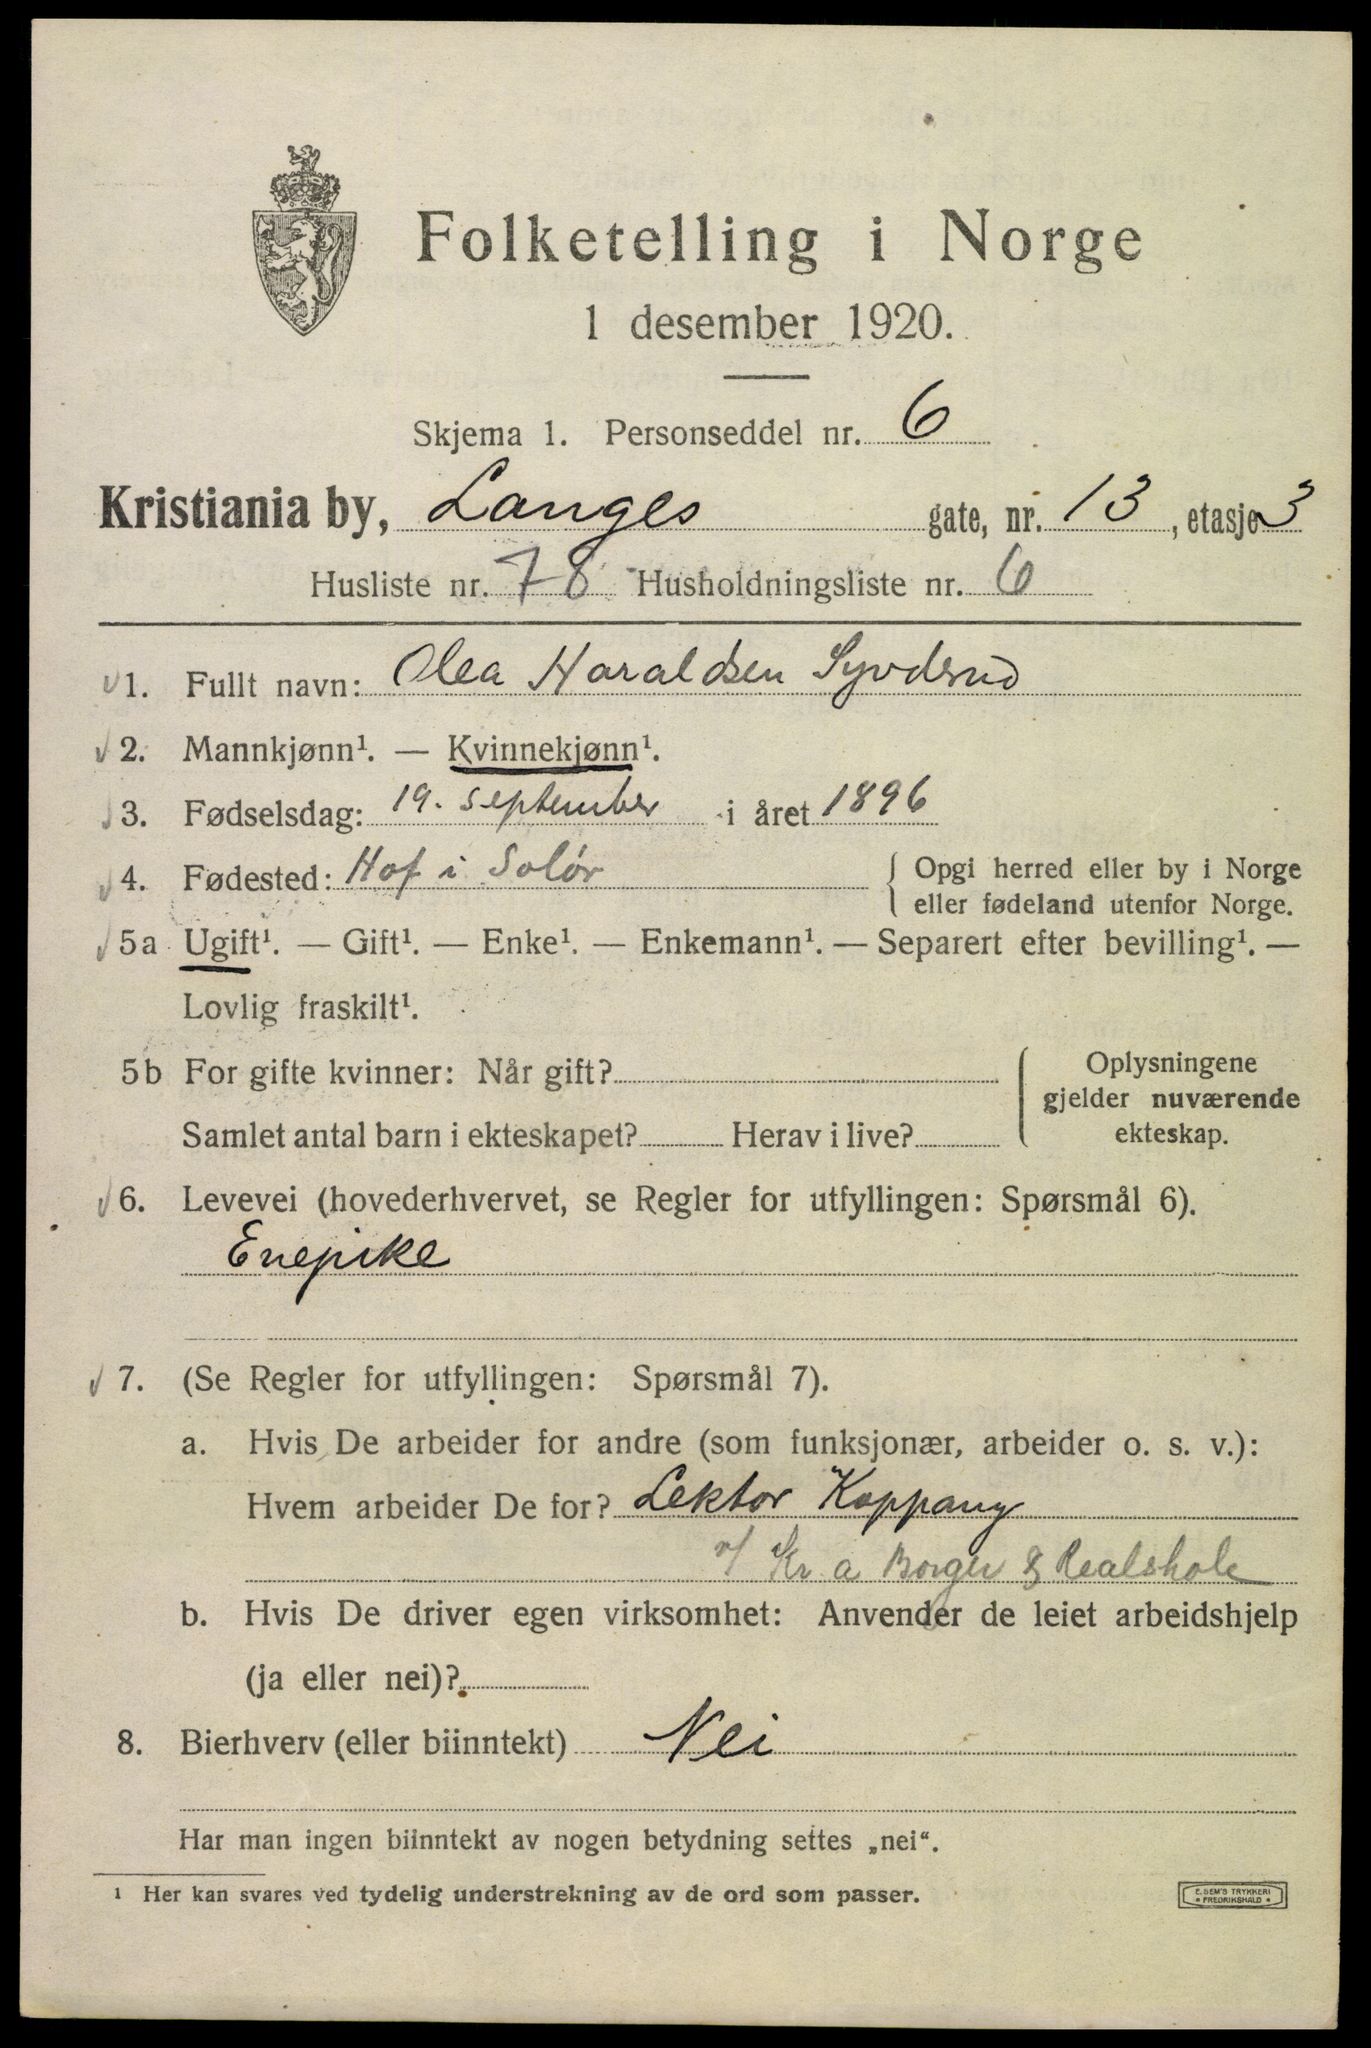 Folketelling i Norge
1 desember 1920.
Skjema 1. Personseddel nr. 6
Kristiania by, Langes gate, nr. 13, etasje 3
Husliste nr. 78 Husholdningsliste nr. 6
1. Fullt navn: Olea Haraldsen Syvderud
2. Mannkjønn¹. — Kvinnekjønn¹.
3. Fødselsdag: 19. september i året 1896
4. Fødested: Hof i Solør { Opgi herred eller by i Norge
eller fødeland utenfor Norge.
5a Ugift¹. — Gift¹. — Enke¹. — Enkemann¹. — Separert efter bevilling¹. —
Lovlig fraskilt¹.
5b For gifte kvinner: Når gift?
Samlet antal barn i ekteskapet? Herav i live?
Oplysningene
gjelder nuværende
ekteskap.
6. Levevei (hovederhvervet, se Regler for utfyllingen: Spørsmål 6).
Enepike
7. (Se Regler for utfyllingen: Spørsmål 7).
a. Hvis De arbeider for andre (som funksjonær, arbeider o. s. v.):
Hvem arbeider De for? Lektor Koppang
v/ Kr a Borger & Realskole
b. Hvis De driver egen virksomhet: Anvender de leiet arbeidshjelp
(ja eller nei)?
8. Bierhverv (eller biinntekt) Nei
Har man ingen biinntekt av nogen betydning settes „nei“.
¹ Her kan svares ved tydelig understrekning av de ord som passer.
E. SEM'S TRYKKERI
FREDRIKSHALD